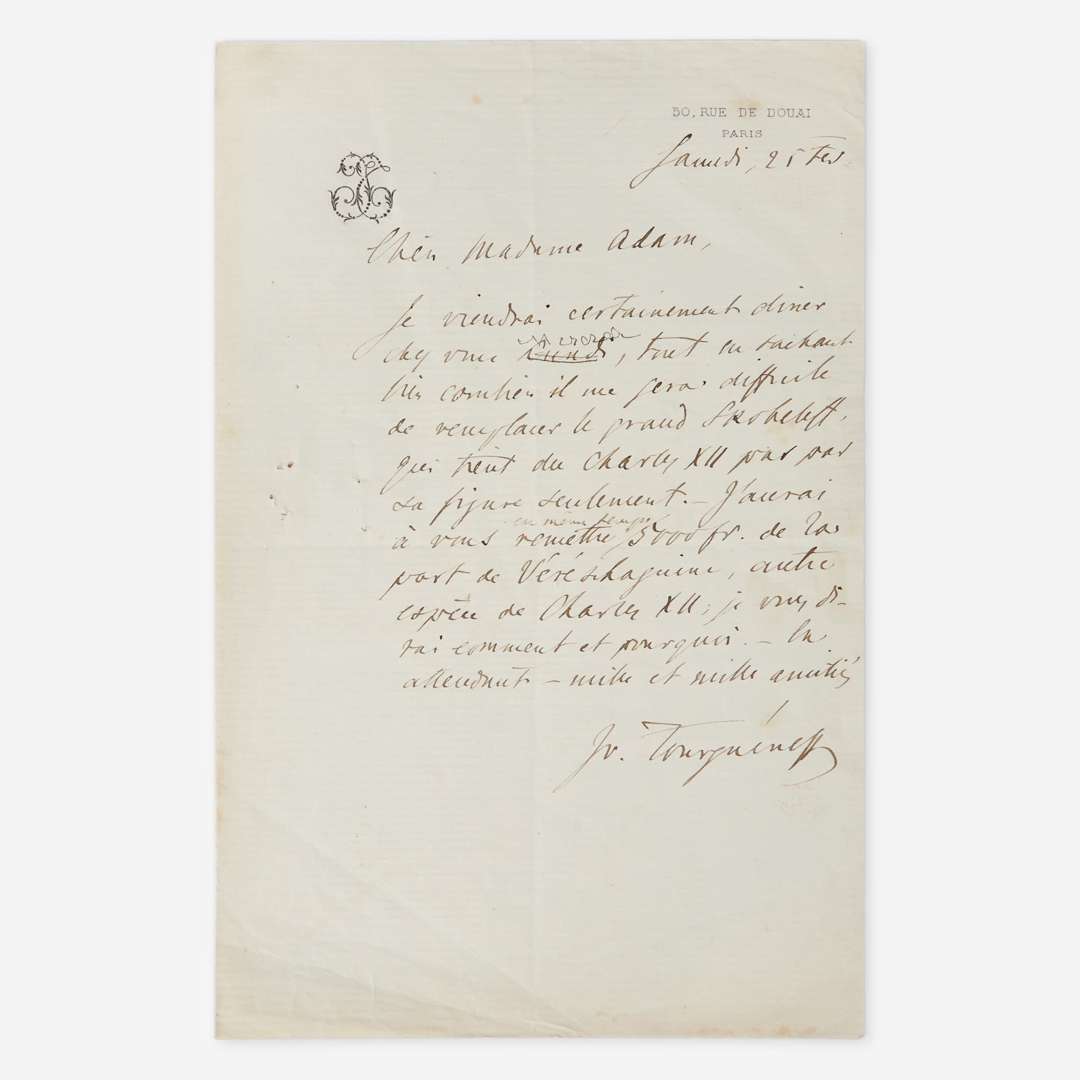 50, RUE DE DOUAI
PARIS
Samedi, 25 Fev.
Chère Madame Adam,
Je viendrai certainement dîner
chez vous lundi, tout en sachant
bien combien il me sera difficile
de remplacer le grand Skobeleff,
qui tient du Charles XII pas par
sa figure seulement. — J'aurai
en même temps
à vous remettre 5000 fr. de la
part de Véréschaguine, autre
espèce de Charles XII; je vous di-
rai comment et pourquoi. — En
attendant — mille et mille amitiés
Iv. Tourguéneff